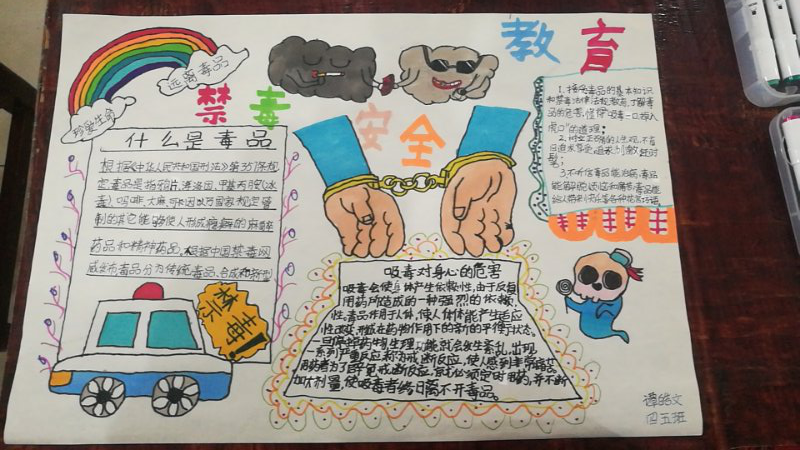 远离毒品
珍爱生命
禁毒
安全
教育
什么是毒品
根据《中华人民共和国刑法》第357条规
定毒品是指鸦片,海洛因,甲基丙
毒)吗啡,大麻,可卡因以及国家规定管
制的其它能够使人形成瘾癖的麻醉
药品和精神药品,根据中国禁毒网
毒品分为传统毒品,合成
禁毒!
1.接受毒品的基本知识
和禁毒法律法规教育,了解毒
品的危害,懂得"吸毒一口,掉入
虎口"的道理;
2.树立正确的人生观,不盲
目追求享受,
3.不听信毒品能治病,毒品
能解脱烦恼和痛苦,毒品能
给人带来快乐等各种花言巧语
吸毒对身心的危害
吸毒会使人体产生依赖性,由于反复
用药所造成的一种强烈的依赖
性,毒品作用于人体,使人体体能产生适应
性改变,形成在药物作用下的新的平衡状态,
一旦停掉药物,生理功能就会发生紊乱,出现
一系列严重反应,称为戒断反应,使人感到非常痛苦,
用药者为了避免戒断反应,就必须定时用药,并不断
加大剂量,使吸毒者终日离不开毒品。
谭皓文
四五班